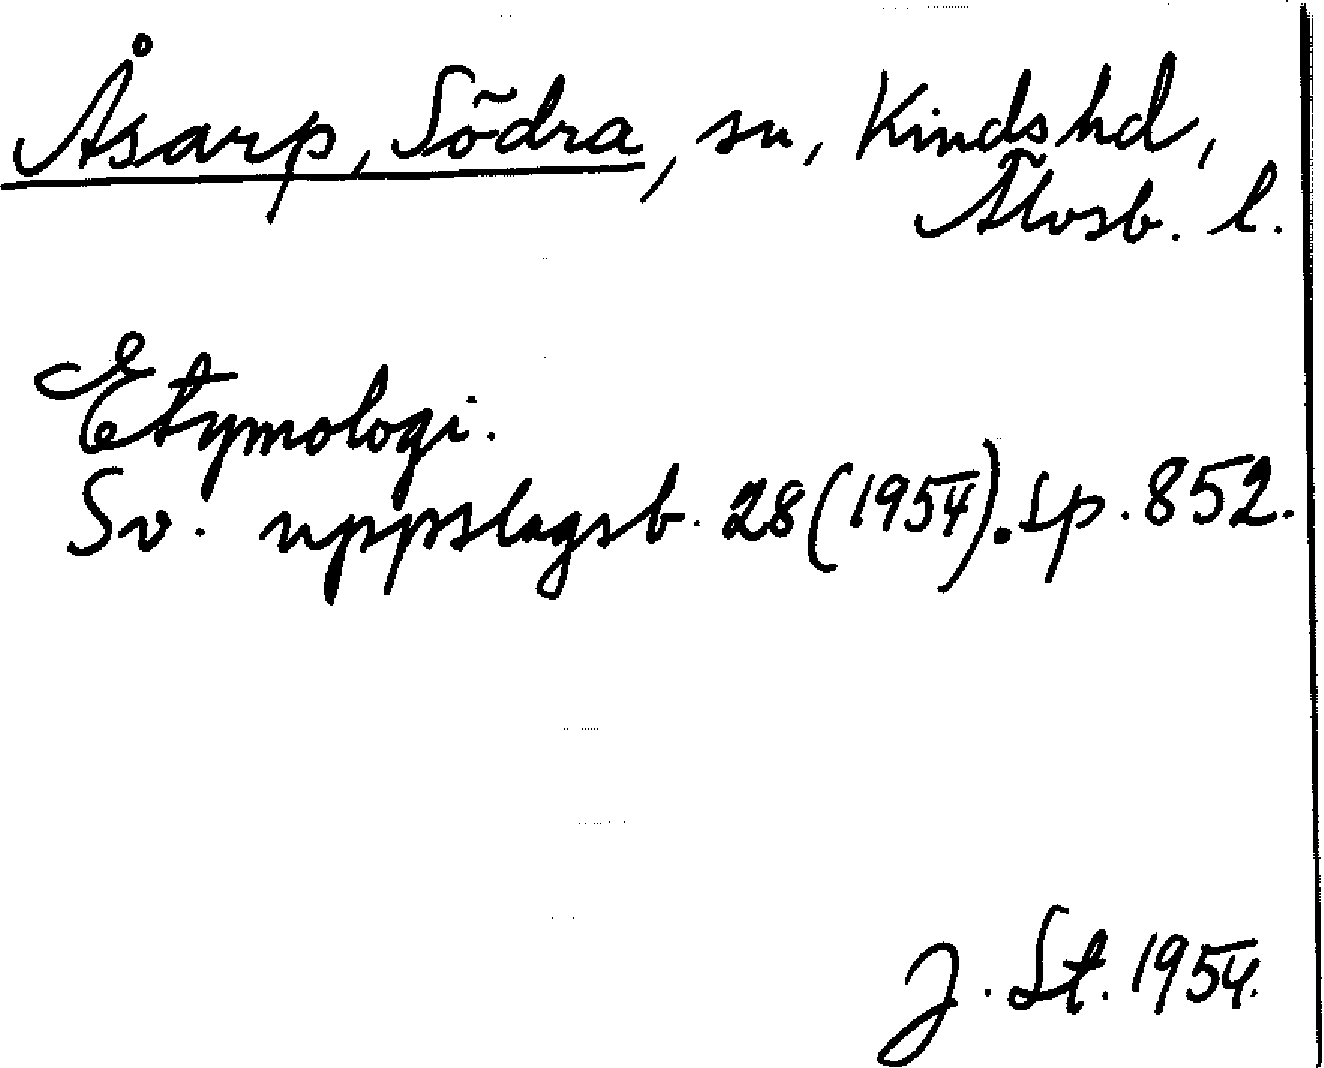 Åsarp, Södra, sn, Kinds hd,
Älvsb. l.
Etymologi.
Sv. uppslagsb. 28 (1954). Sp. 852.
J. St. 1954.